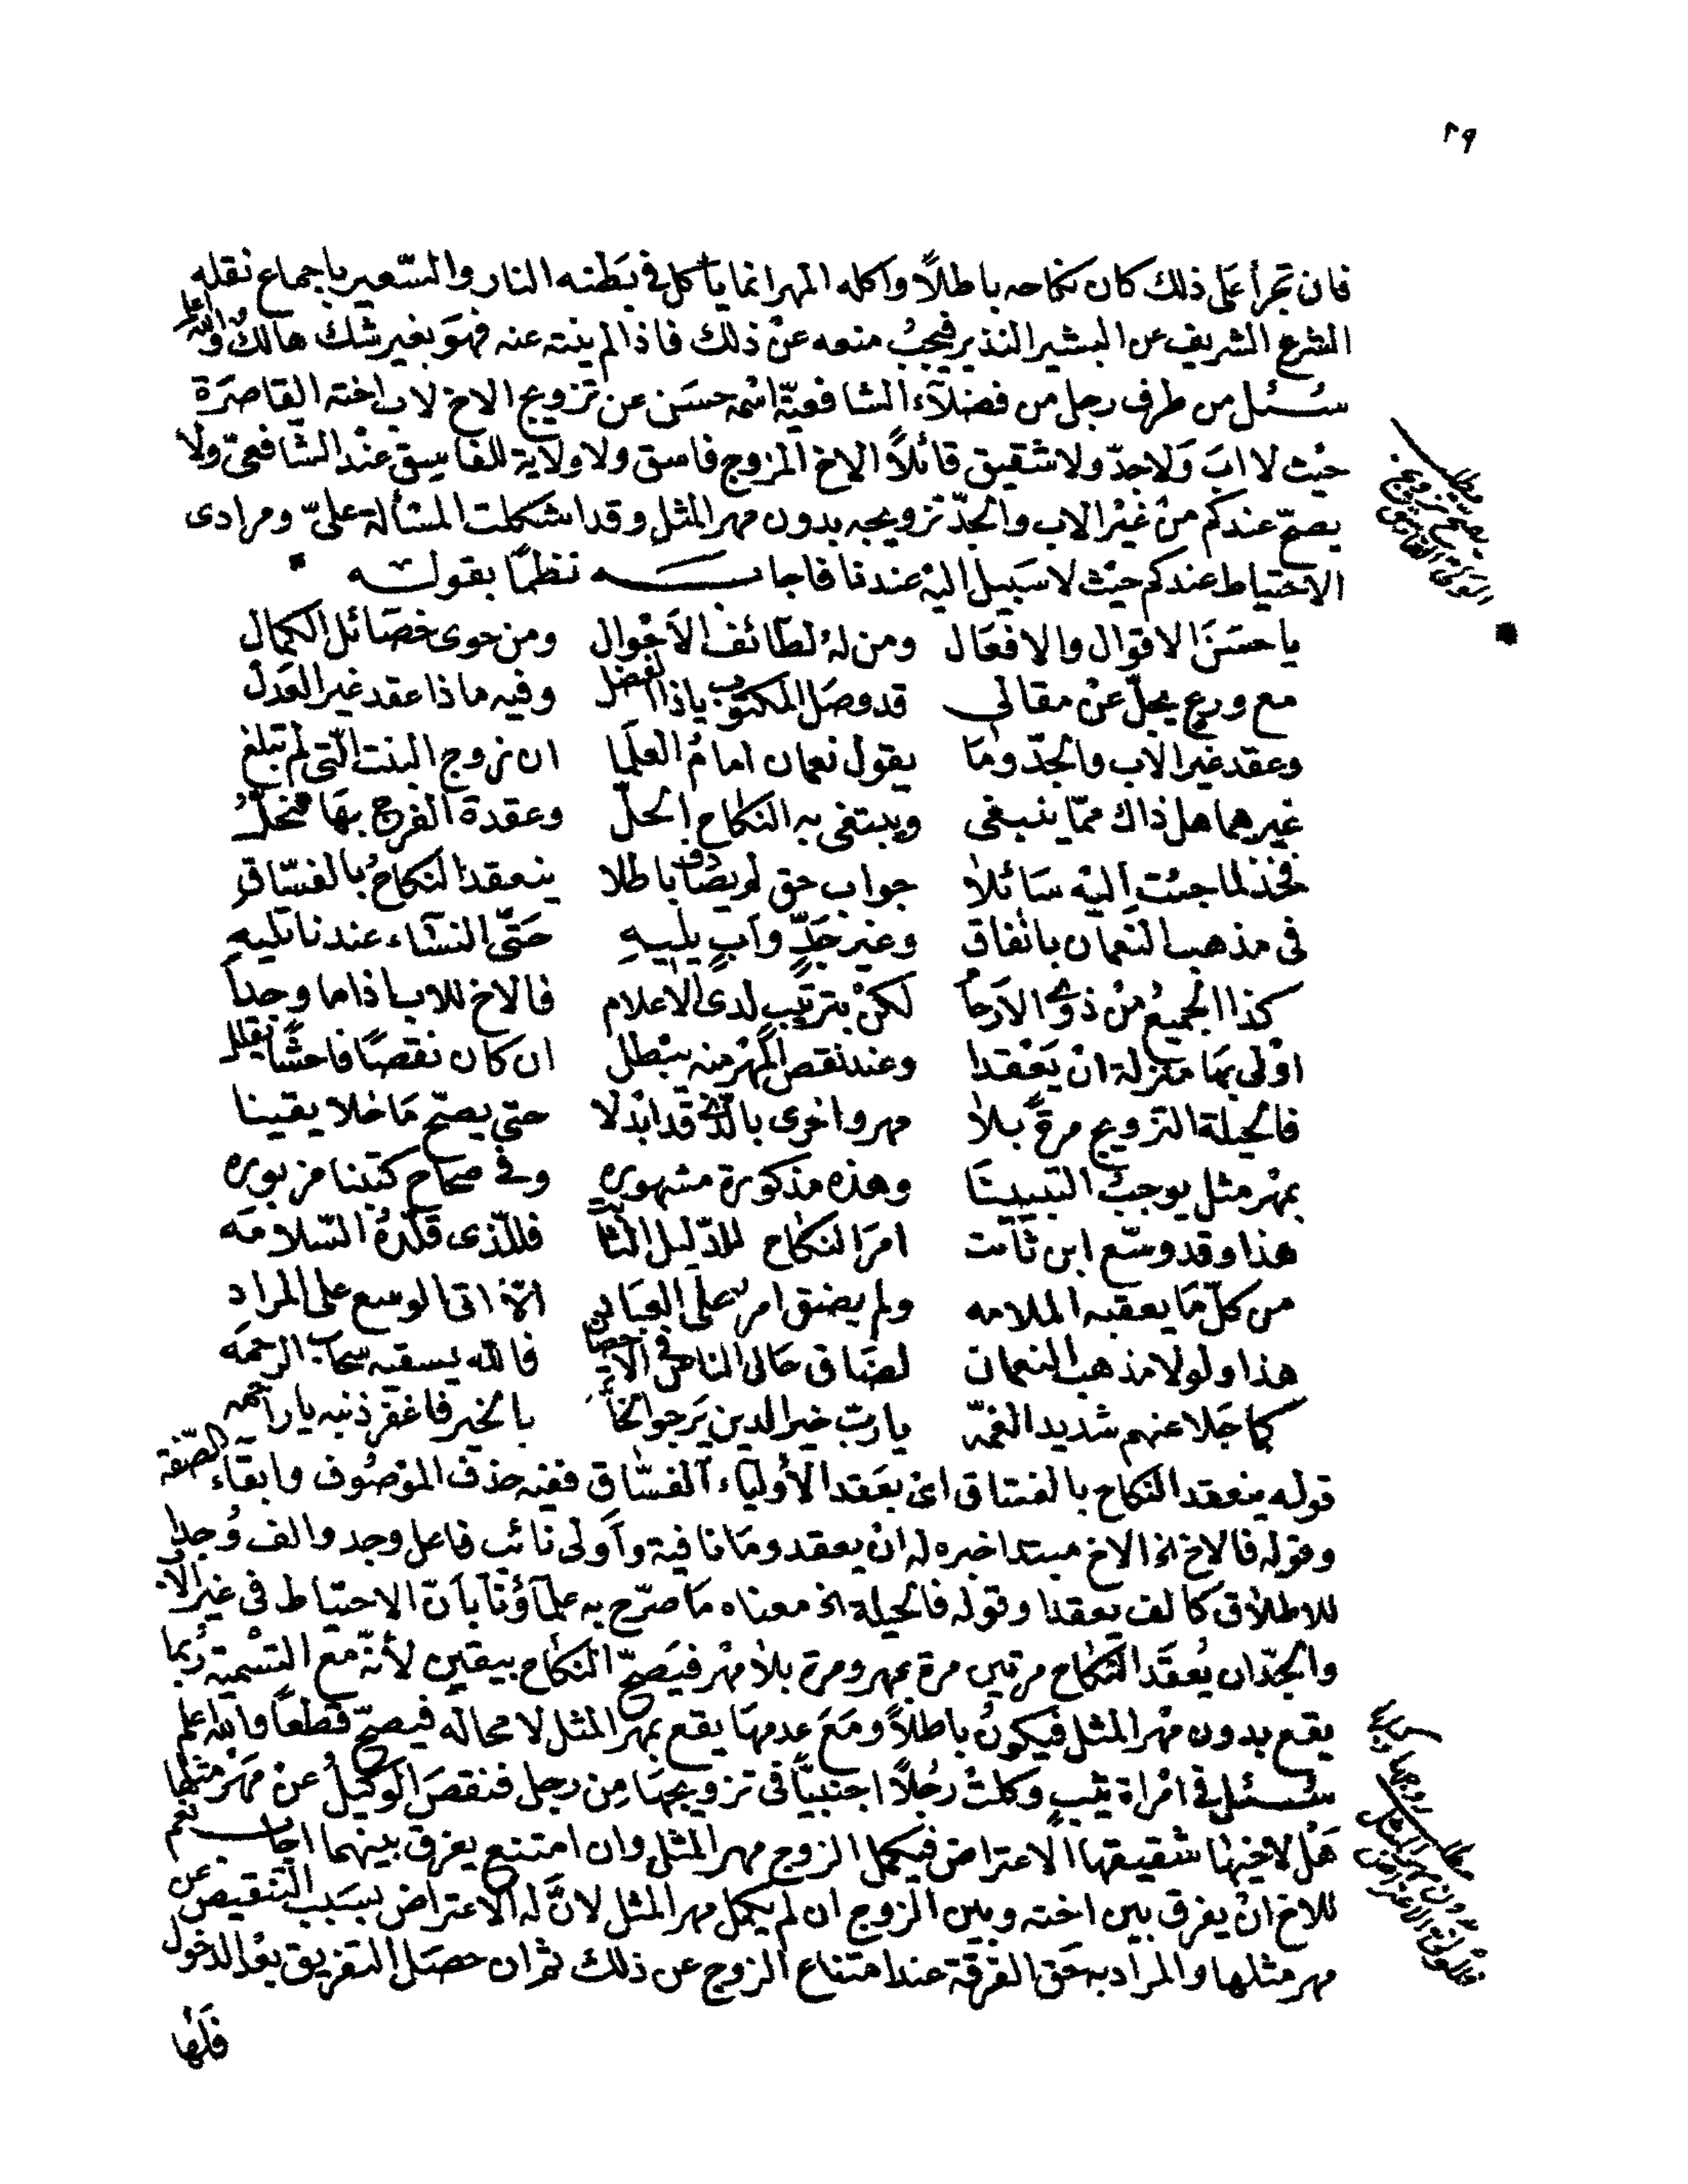 ٢٩
فان تجرأ على ذلك كان نكاحه باطلًا واكله المهر انما ياكل في بطنه النار والسّعير باجماع نقله
الشرع الشريف عن البشير النذير فيجبُ منعه عنْ ذلك فاذا لم ينته عنه فهوَ بغير شك هالكٌ والله اعلم
سُئل من طرف رجل من فضلآء الشافعيّة اسمه حسَن عن تزويج الاخ لاب اخته القاصرَة
حيْث لا ابَ وَلا جدّ ولا شقيق قائلًا الاخ المزوج فاسق ولا ولاية للفاسق عنْد الشافعيّ ولا
يصحّ عندكم منْ غيْر الاب والجدّ تزويجه بدون مهر المثل وقد اشكلت المسْألة علىّ ومرادى
الاحتياط عندكم حيْث لا سَبيل اليْه عندنا فاجابه نظمًا بقوله
يا حسَنَ الاقوال والافعَال ومن لهُ لطَائف الاَحْوال ومن حوى خصَائل الكمال
مع ورعٍ يجلّ عنْ مقالى قد وصَل المكتوب يا ذا الفضل وفيه ماذا عقد غير العَدل
وعقد غير الاب والجدّ ومَا يقول نعمان امامُ العلَما ان زوج البنت الّتى لم تبلغ
غيرهما هل ذاك ممّا ينبغى ويبتغى به النكاح الحلّ وعقدة الفرج بهَا تنحلُّ
فخذ لما جئت اليْه سَائلا جواب حق لم يصَادف باطلا ينعقد النكاحُ بالفسّاق
فى مذهب النعمان باتفاق وغير جَدٍّ وأبٍ يليهِ حَتّى النسَّاء عندنا تليهِ
كذا الجميعُ منْ ذوى الاَرحام لكنْ بترتيب لدى الاعلام فالاخ للاب اذا ما وجدا
اوْلى بها منزلة انْ يَعْقدا وعند نقص المهْر منه يبْطل ان كان نقصًا فاحشًا ينقل
فالحيلة التزويج مرةً بلا مهر واخرى بالّذى قد ابْدلا حتى يصحّ مَا خلا يقينا
بمهْر مثل يوجبُ التبيينَا وهذه مذكورة مشهوره وفى صحاح كتبنا مزبوره
هذا وقد وسّع ابن ثَابت امرَ النكاح للدّليل الثّابت فللّذى قلّدهُ السّلامَه
من كلّ مَا يعقبه الملامه ولم يضق امر على العبَاد الا اتى الوسع على المراد
هذا ولولا مذهب النعمان لضَاق حَال الناس فى الاحصان فالله يسقيه سحاب الرحمَه
كما جَلا عنهم شديد الغمّه يا ربّ خير الدين يَرجو الخاتمه بالخير فاغفر ذنبه يا راحمه
قوله ينعقد النكاح بالفسّاق اى بعَقد الأولياء الفسّاق ففيه حذف الموْصُوف وابقاء الصّفة
وقوله فالاخ الخ الاخ مبتدا خبره له انْ يعقد ومَا نافية وأولى نائب فاعل وجد والف وُجدا
للاطلاق كالف يعقدا وقوله فالحيلة الخ معناه مَا صرّح به علمآؤنا بأنّ الاحتياط فى غير الاب
والجدّ ان يُعقَد النكاح مرتين مرة بمهر ومرة بلا مهْر فيَصحّ النكاح بيقين لأنّه مع التسْمية ربما
يقع بدون مهْر المثل فيكونُ باطلًا ومَعَ عدمهَا يقع بمهر المثل لا محالة فيصحّ قطعًا والله اعلم
سُئل فى امْراة ثيّبٍ وكلتْ رجُلًا اجنبيًّا فى تزويجهَا مِن رجل فنقصَ الوكيلُ عنْ مهْر مثلها
هَلْ لاخيهَا شقيقها الاعتراض فيكمل الزوج مهر المثل وان امتنع يفرق بينهما اجاب نعم
للاخ انْ يفرق بين اخته وبين الزوج ان لم يكمل مهر المثل لانَّ له الاعتراض بسَبب التنقيص عن
مهر مثلها والمراد به حَق الفرقة عند امتناع الزوج عن ذلك ثم ان حصَل التفريق بعْد الدخول
فلَها